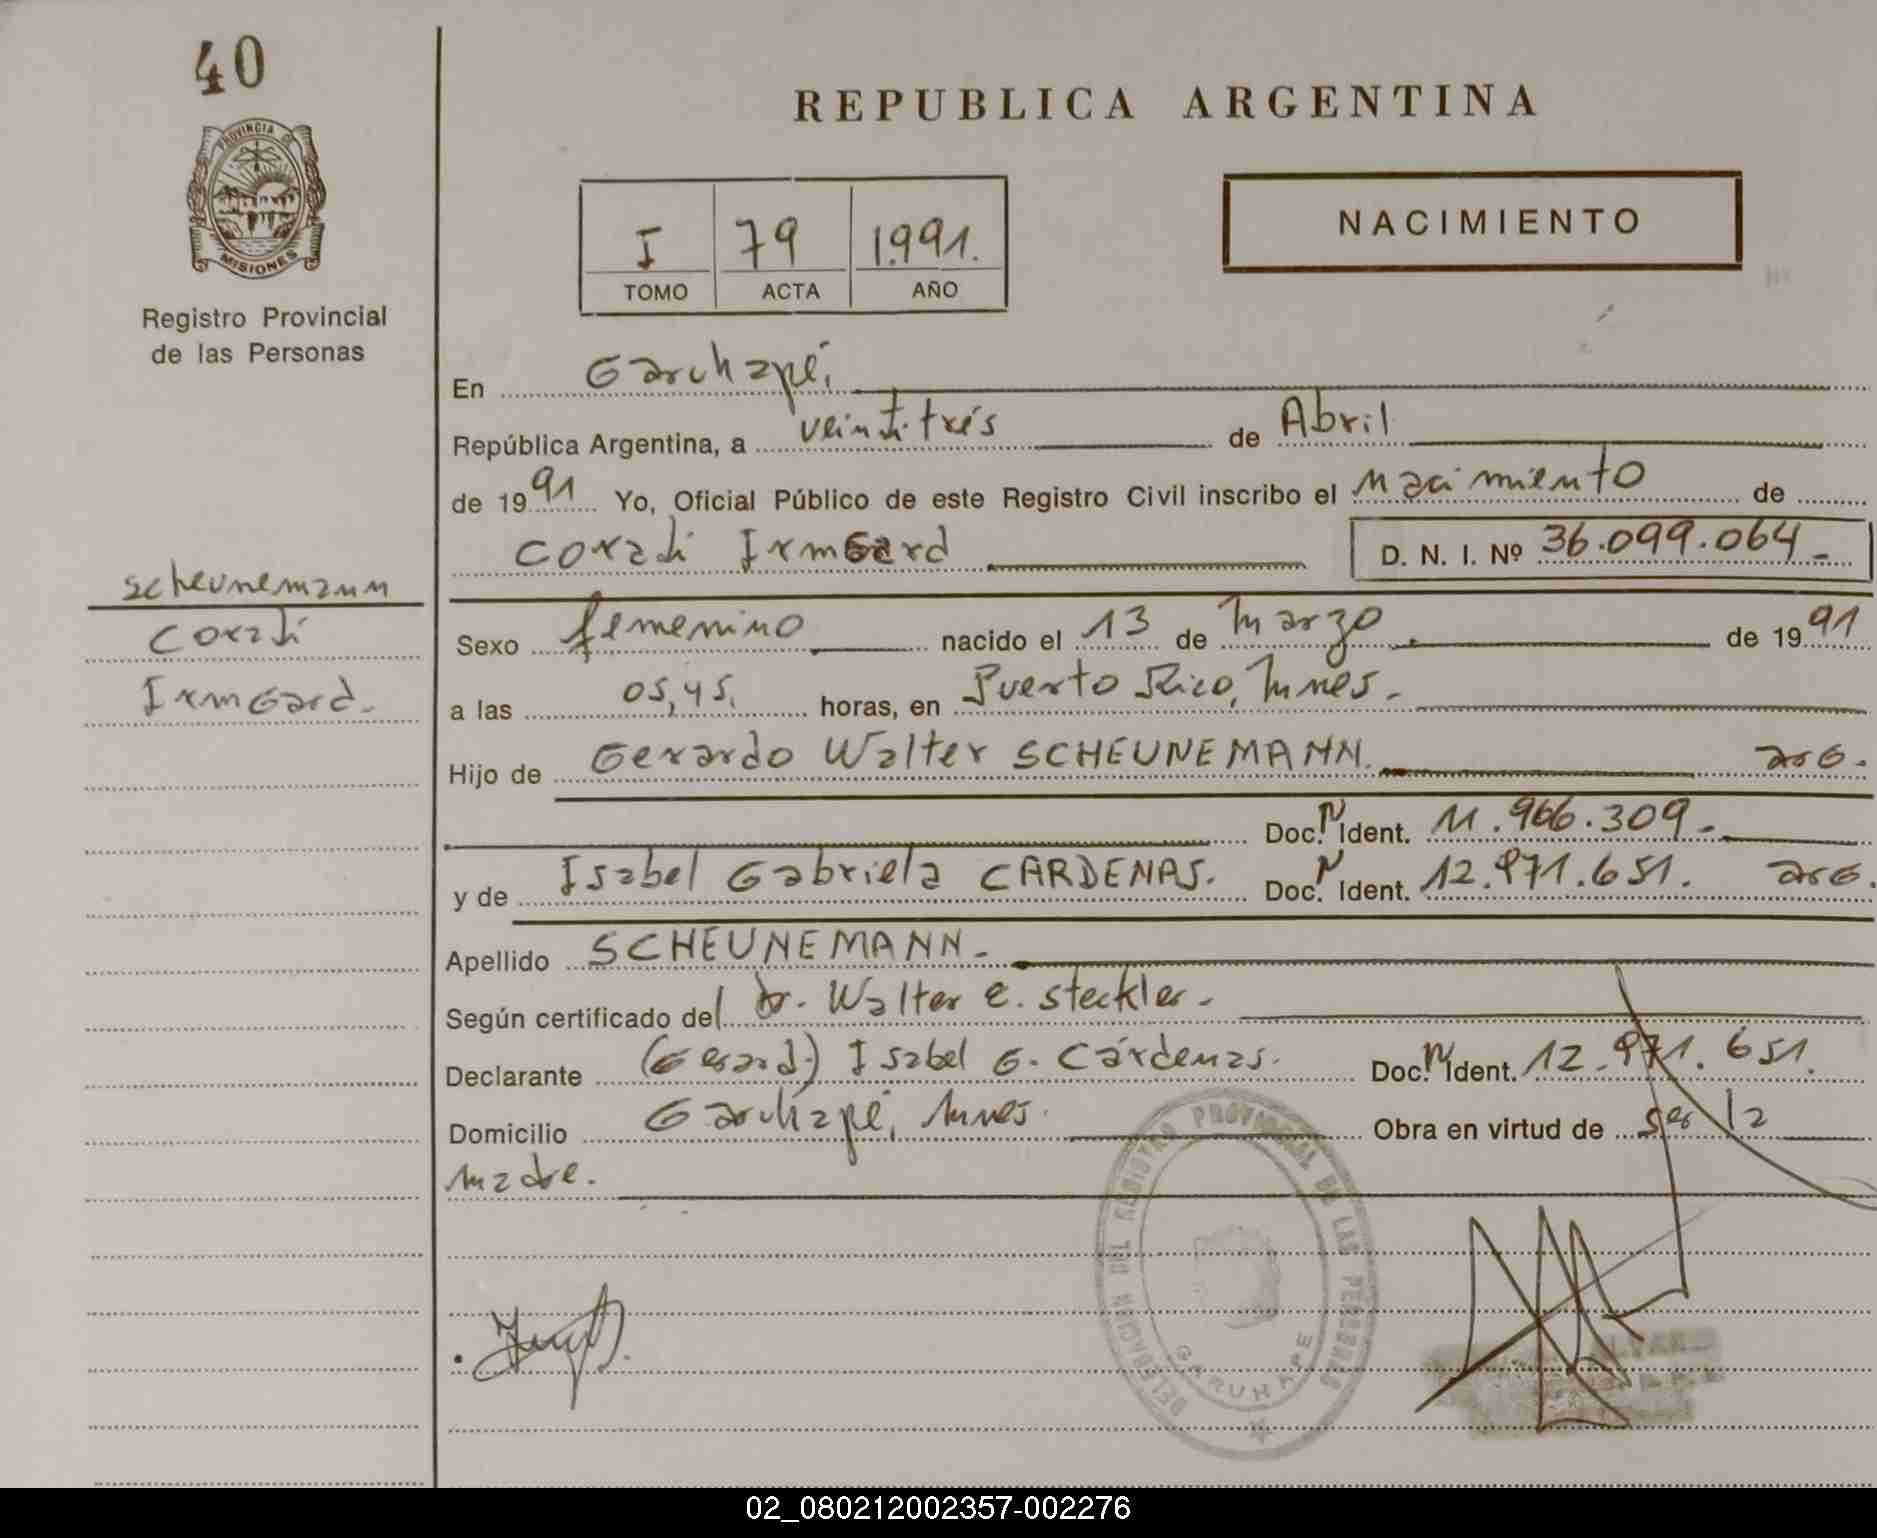 40
REPUBLICA ARGENTINA
PROVINCIA DE
MISIONES
Registro Provincial
de las Personas
NACIMIENTO
I 79 1.991.
TOMO ACTA AÑO
En Garuhapé,
República Argentina, a veintitrés de Abril
de 1991 Yo, Oficial Público de este Registro Civil inscribo el Nacimiento de
Coradi Irmgard D. N. I. Nº 36.099.064-
Scheunemann
Coradi
Irmgard.
Sexo femenino nacido el 13 de marzo de 1991
a las 05,45. horas, en Puerto Rico, Mnes.
Hijo de Gerardo Walter SCHEUNEMANN. arg.
Doc. N Ident. 11.966.309.-
y de Isabel Gabriela CARDENAS. Doc. N Ident. 12.971.651. arg.
Apellido SCHEUNEMANN.-
Según certificado del dr. Walter E. Steckler.-
Declarante (Gerard) Isabel G. Cárdenas. Doc. N Ident. 12.971.651.
Domicilio Garuhapé, Mnes. Obra en virtud de ser la
madre.
DELEGACION DEL REGISTRO PROVINCIAL DE LAS PERSONAS
GARUHAPE
02_080212002357-002276